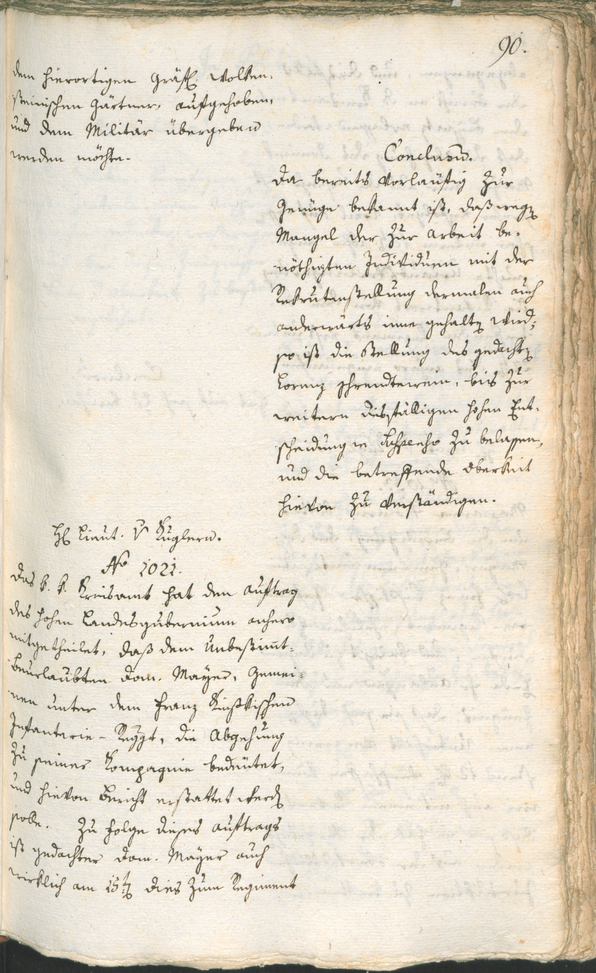 90.
dem hierortigen Gräfl. Wolken-
steinischen Gärtner, aufgehoben,
und dem Militär übergeben
werden möchte.
Conclusũ.
Da bereits vorläufig zur
Genüge bekannt ist, daß weg
Mangel der zur Arbeit be-
nöthigten Individuen mit der
Rekrutenstellung dermalen auch
anderwärts inne gehalt wird,
so ist die Stellung des gedacht
Lorenz bis zur
weitern diesfälligen hohen Ent-
scheidung in zu belassen,
und die betreffende Oberkeit
hievon zu verständigen.
H Lieut. v Kuglern.
No 1021.
Das k. k. Kreisamt hat den Auftrag
des hohen Landesgubernium anhero
mitgetheilet, daß dem Unbestim̅t-
Beurlaubten Dom. Mayer, Gemei-
nen unter dem Franz Kinskischen
Infanterie-Regmt, die Abgehung
zu seiner Kompagnie bedeutet,
und hievon Bericht erstattet werd
solle. Zu Folge dieses Auftrags
ist gedachter Dom. Mayer auch
wirklich am 15t dies zum Regiment